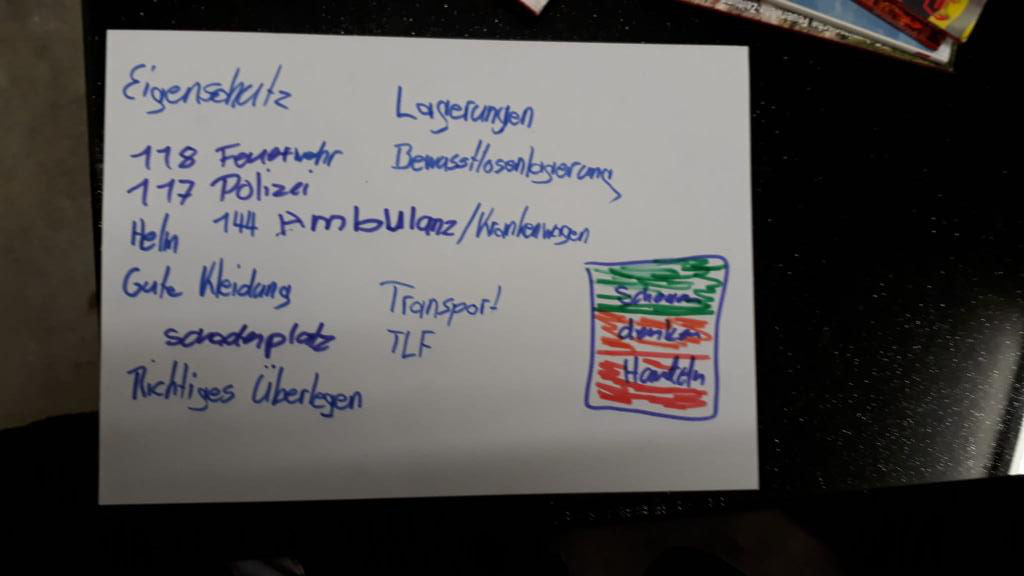 Eigenschutz
Lagerungen
118 Feuerwehr
Bewusstlosenlagerung
117 Polizei
144 Ambulanz/Krankenwagen
Helm
Gute Kleidung
Transport
TLF
schadenplatz
Richtiges Überlegen
Schauen
denken
Handeln